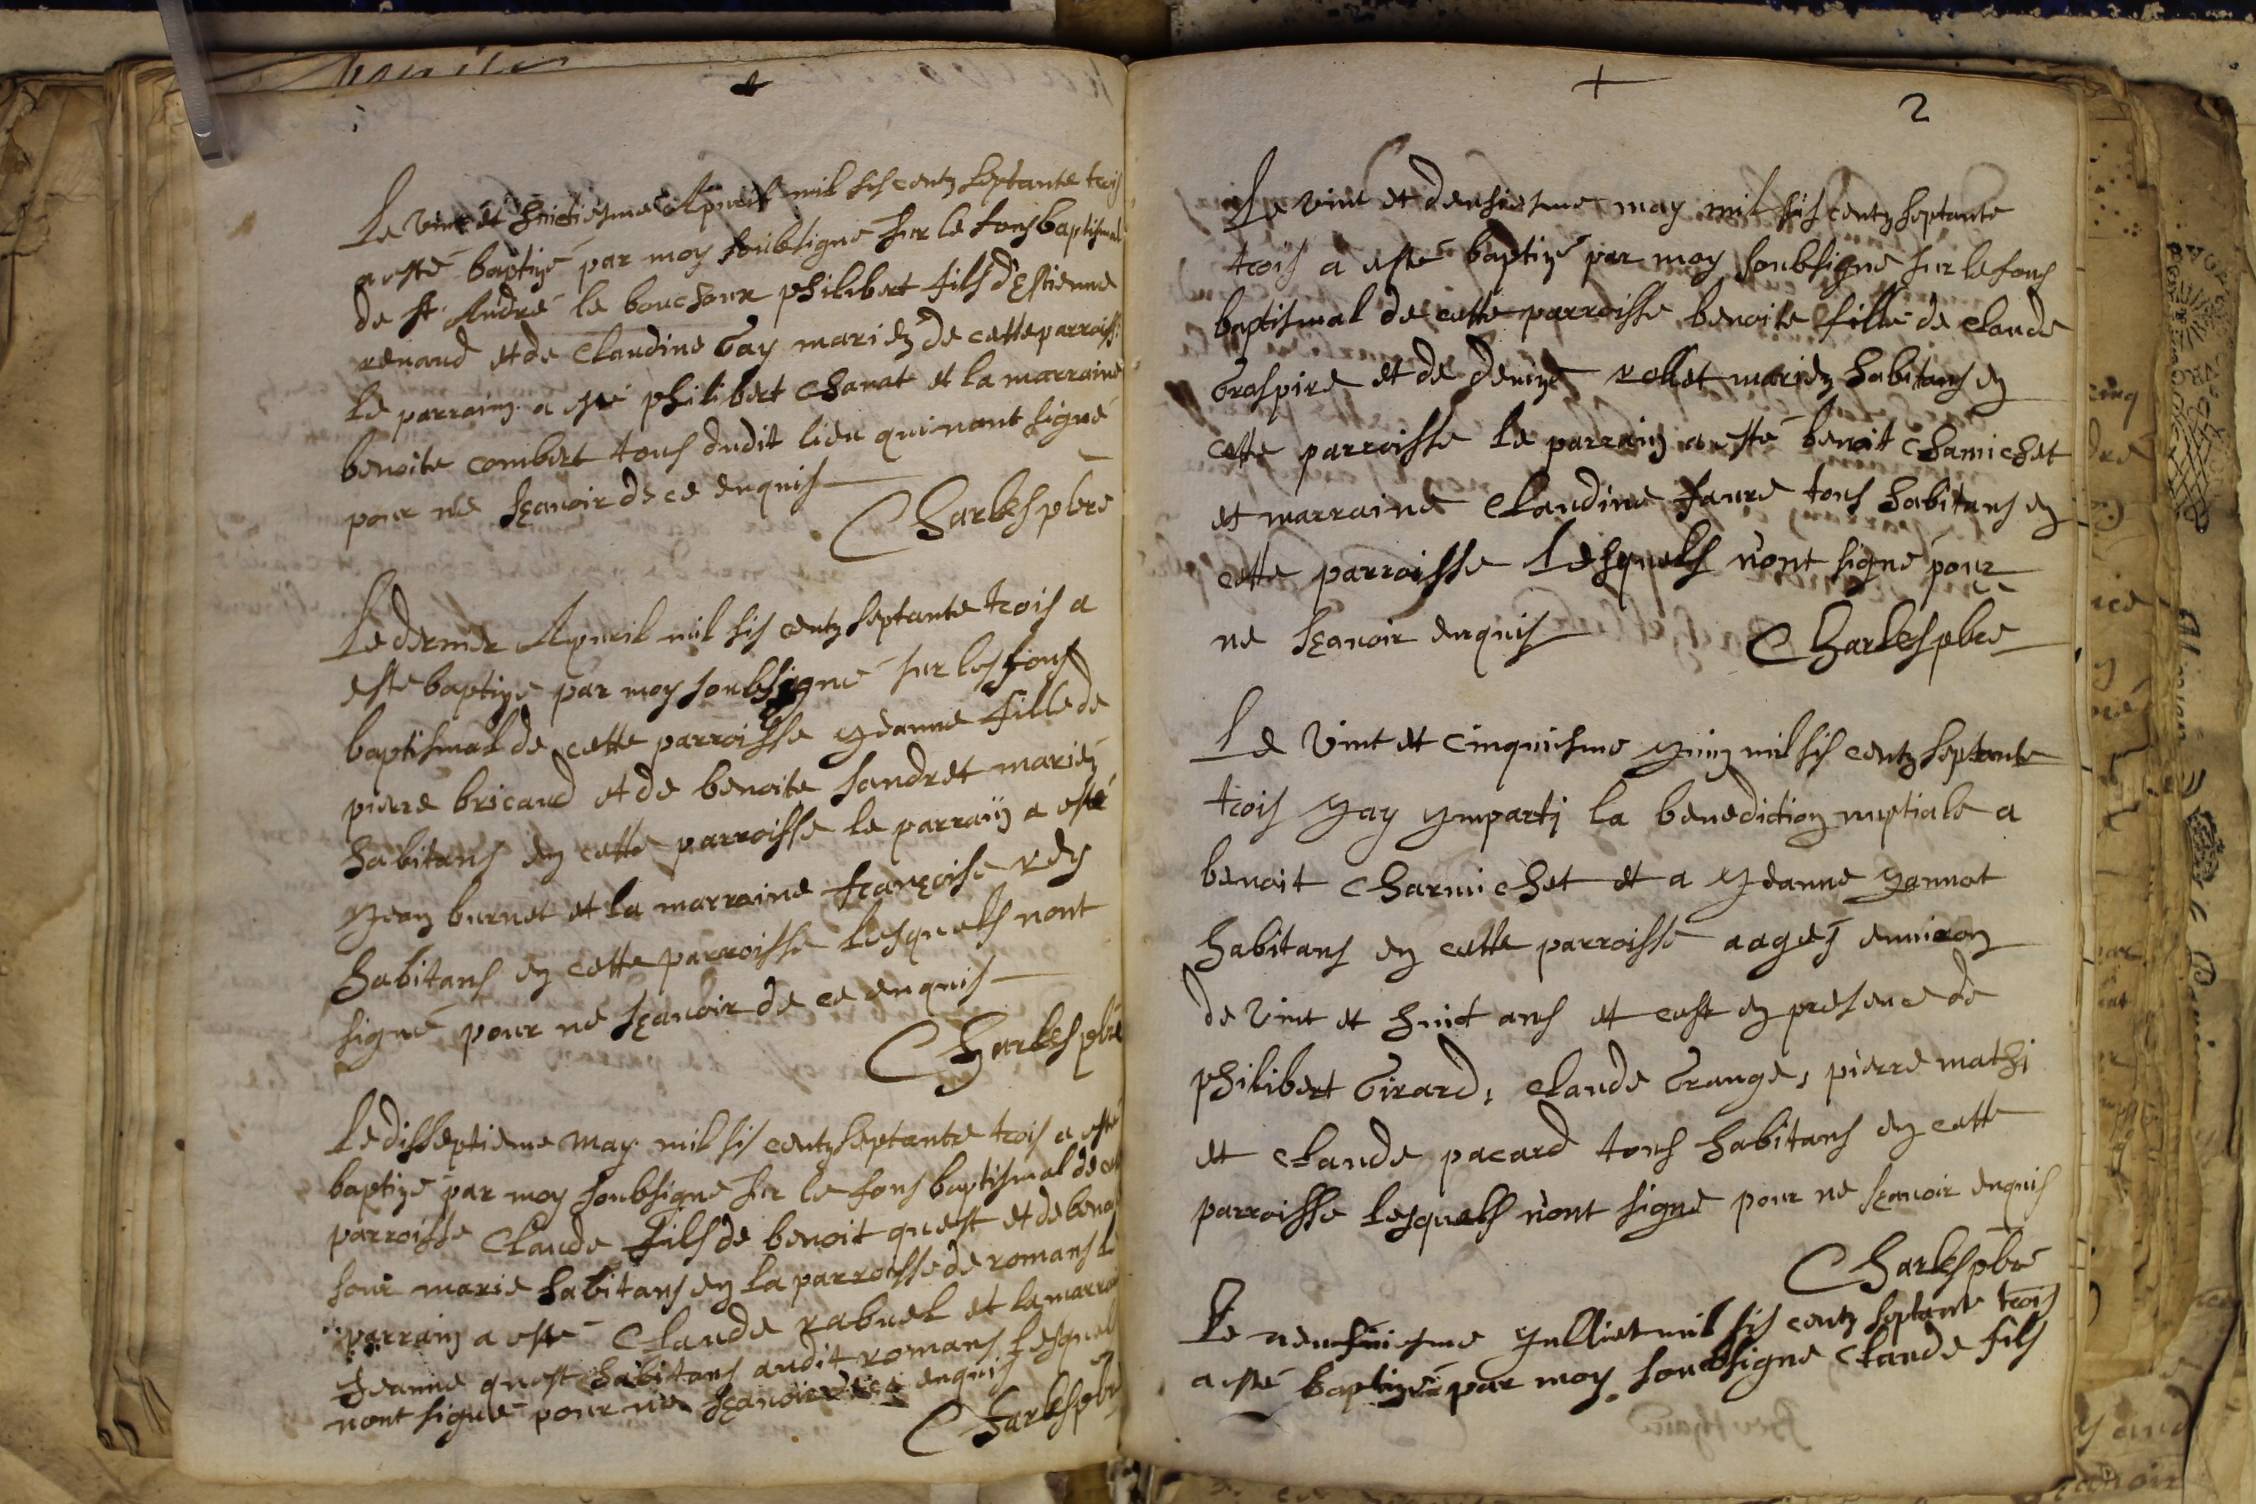 Le vint et huictiesme Apvril mil sis centz septante trois
a esté baptizé par moy soubsigné sur le fons baptismal
de st André le bouchoux philibert fils d'Estienne
renaud et de Claudine Gay mariez de cette parroisse
le parraing a esté philibert Chanat et la marraine
benoite combert tous dudit lieu qui n'ont signé
pour ne sçavoir de ce enquis
Charles pbre
Le dernier Apvril mil sis centz septante trois a
esté baptizé par moy soubsigné sur les fons
baptismal de cette parroisse yeanne fille de
pierre bricaud et de benoite sandret mariez
habitans en cette parroisse le parrain a esté
yean burnet et la marraine françoise rey
habitans en cette parroisse lesquels n'ont
signé pour ne sçavoir de ce enquis
Charles pbre
Le disseptieme may mil sis centz septante trois a esté
baptizé par moy soubsigné sur le fons baptismal de
parroisse Claude fils de benoit quest et de
marié habitans en la parroisse de romans
parrain a esté Claude rabuel et la
yeanne quest habitans audit romans
n'ont signé pour ne sçavoir enquis
Charles pbre
2
Le vint et deusiesme may mil sis centz septante
trois a esté baptizé par moy soubsigné sur le fons
baptismal de cette parroisse benoite fille de Claude
Graspire et de denize rollet mariez habitans en
cette parroisse le parrain a esté benoit Chamichet
et marraine Claudine faure tous habitans en
cette parroisse lesquels n'ont signé pour
ne sçavoir enquis
Charles pbre
Le vint et cinquiesme yuin mil sis centz septante
trois yay ymparti la benediction nuptiale a
benoit Charmichet et a yeanne yannot
habitans en cette parroisse aagés environ
de vint et huict ans et cest en presence de
philibert Girard, Claude Grange, pierre mathi
et Claude pacard tous habitans en cette
parroisse lesquels n'ont signé pour ne sçavoir enquis
Charles pbre
Le neufuiesme yulliet mil sis centz septante trois
a esté baptizé par moy soubsigné Claude fils